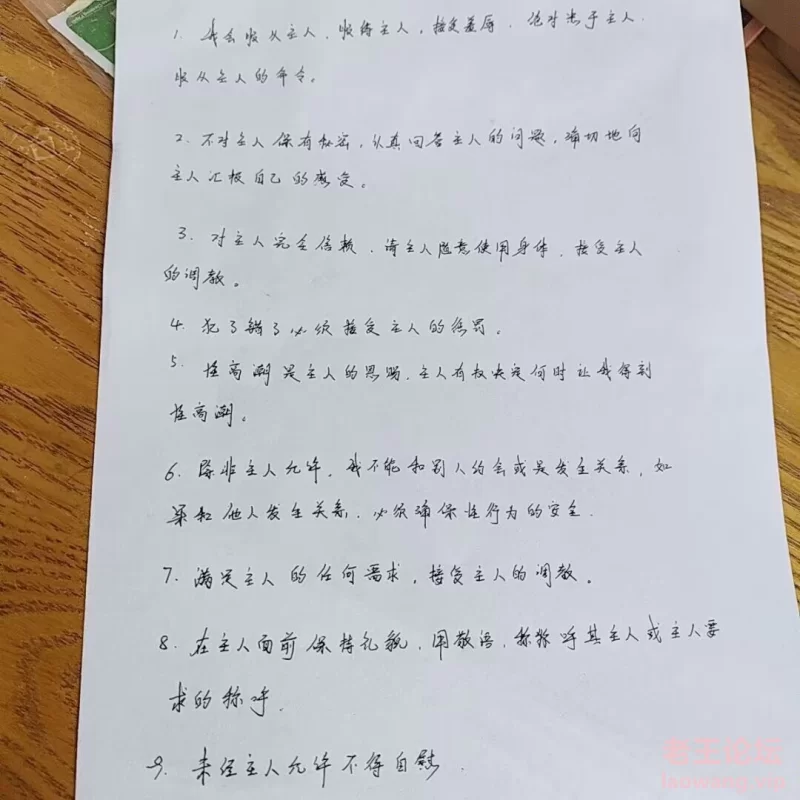 1. 我会服从主人,服侍主人,接受羞辱,绝对忠于主人.
服从主人的命令。
2. 不对主人保有秘密,认真回答主人的问题,确切地向
主人汇报自己的感受。
3. 对主人完全信赖,请主人随意使用身体,接受主人
的调教。
4. 犯了错了必须接受主人的惩罚。
5. 性高潮是主人的恩赐,主人有权决定何时让我得到
性高潮。
6. 除非主人允许,我不能和别人约会或是发生关系,如
果和他人发生关系,必须确保性行为的安全.
7. 满足主人的任何需求,接受主人的调教。
8. 在主人面前保持礼貌,用敬语,称称呼其主人或主人要
求的称呼.
9. 未经主人允许不得自慰.
老王论坛
laowang.vip